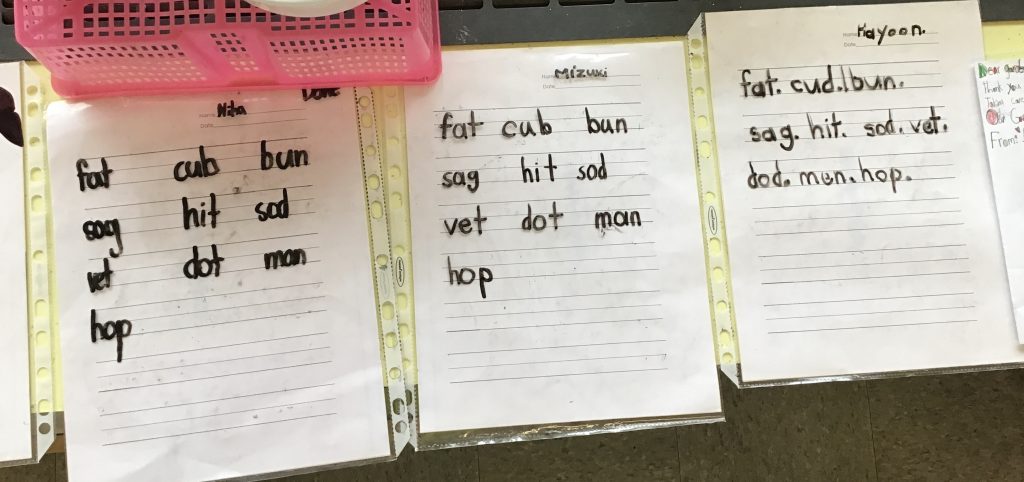 Name Nita
Done
Date
fat cub bun
sag hit sod
vet dot man
hop
Name Mizuki
Date
fat cub bun
sag hit sod
vet dot man
hop
Name Kayoon.
Date
fat. cud. bun.
sag. hit. sod. vet.
dod. man. hop.
Thank you
From: